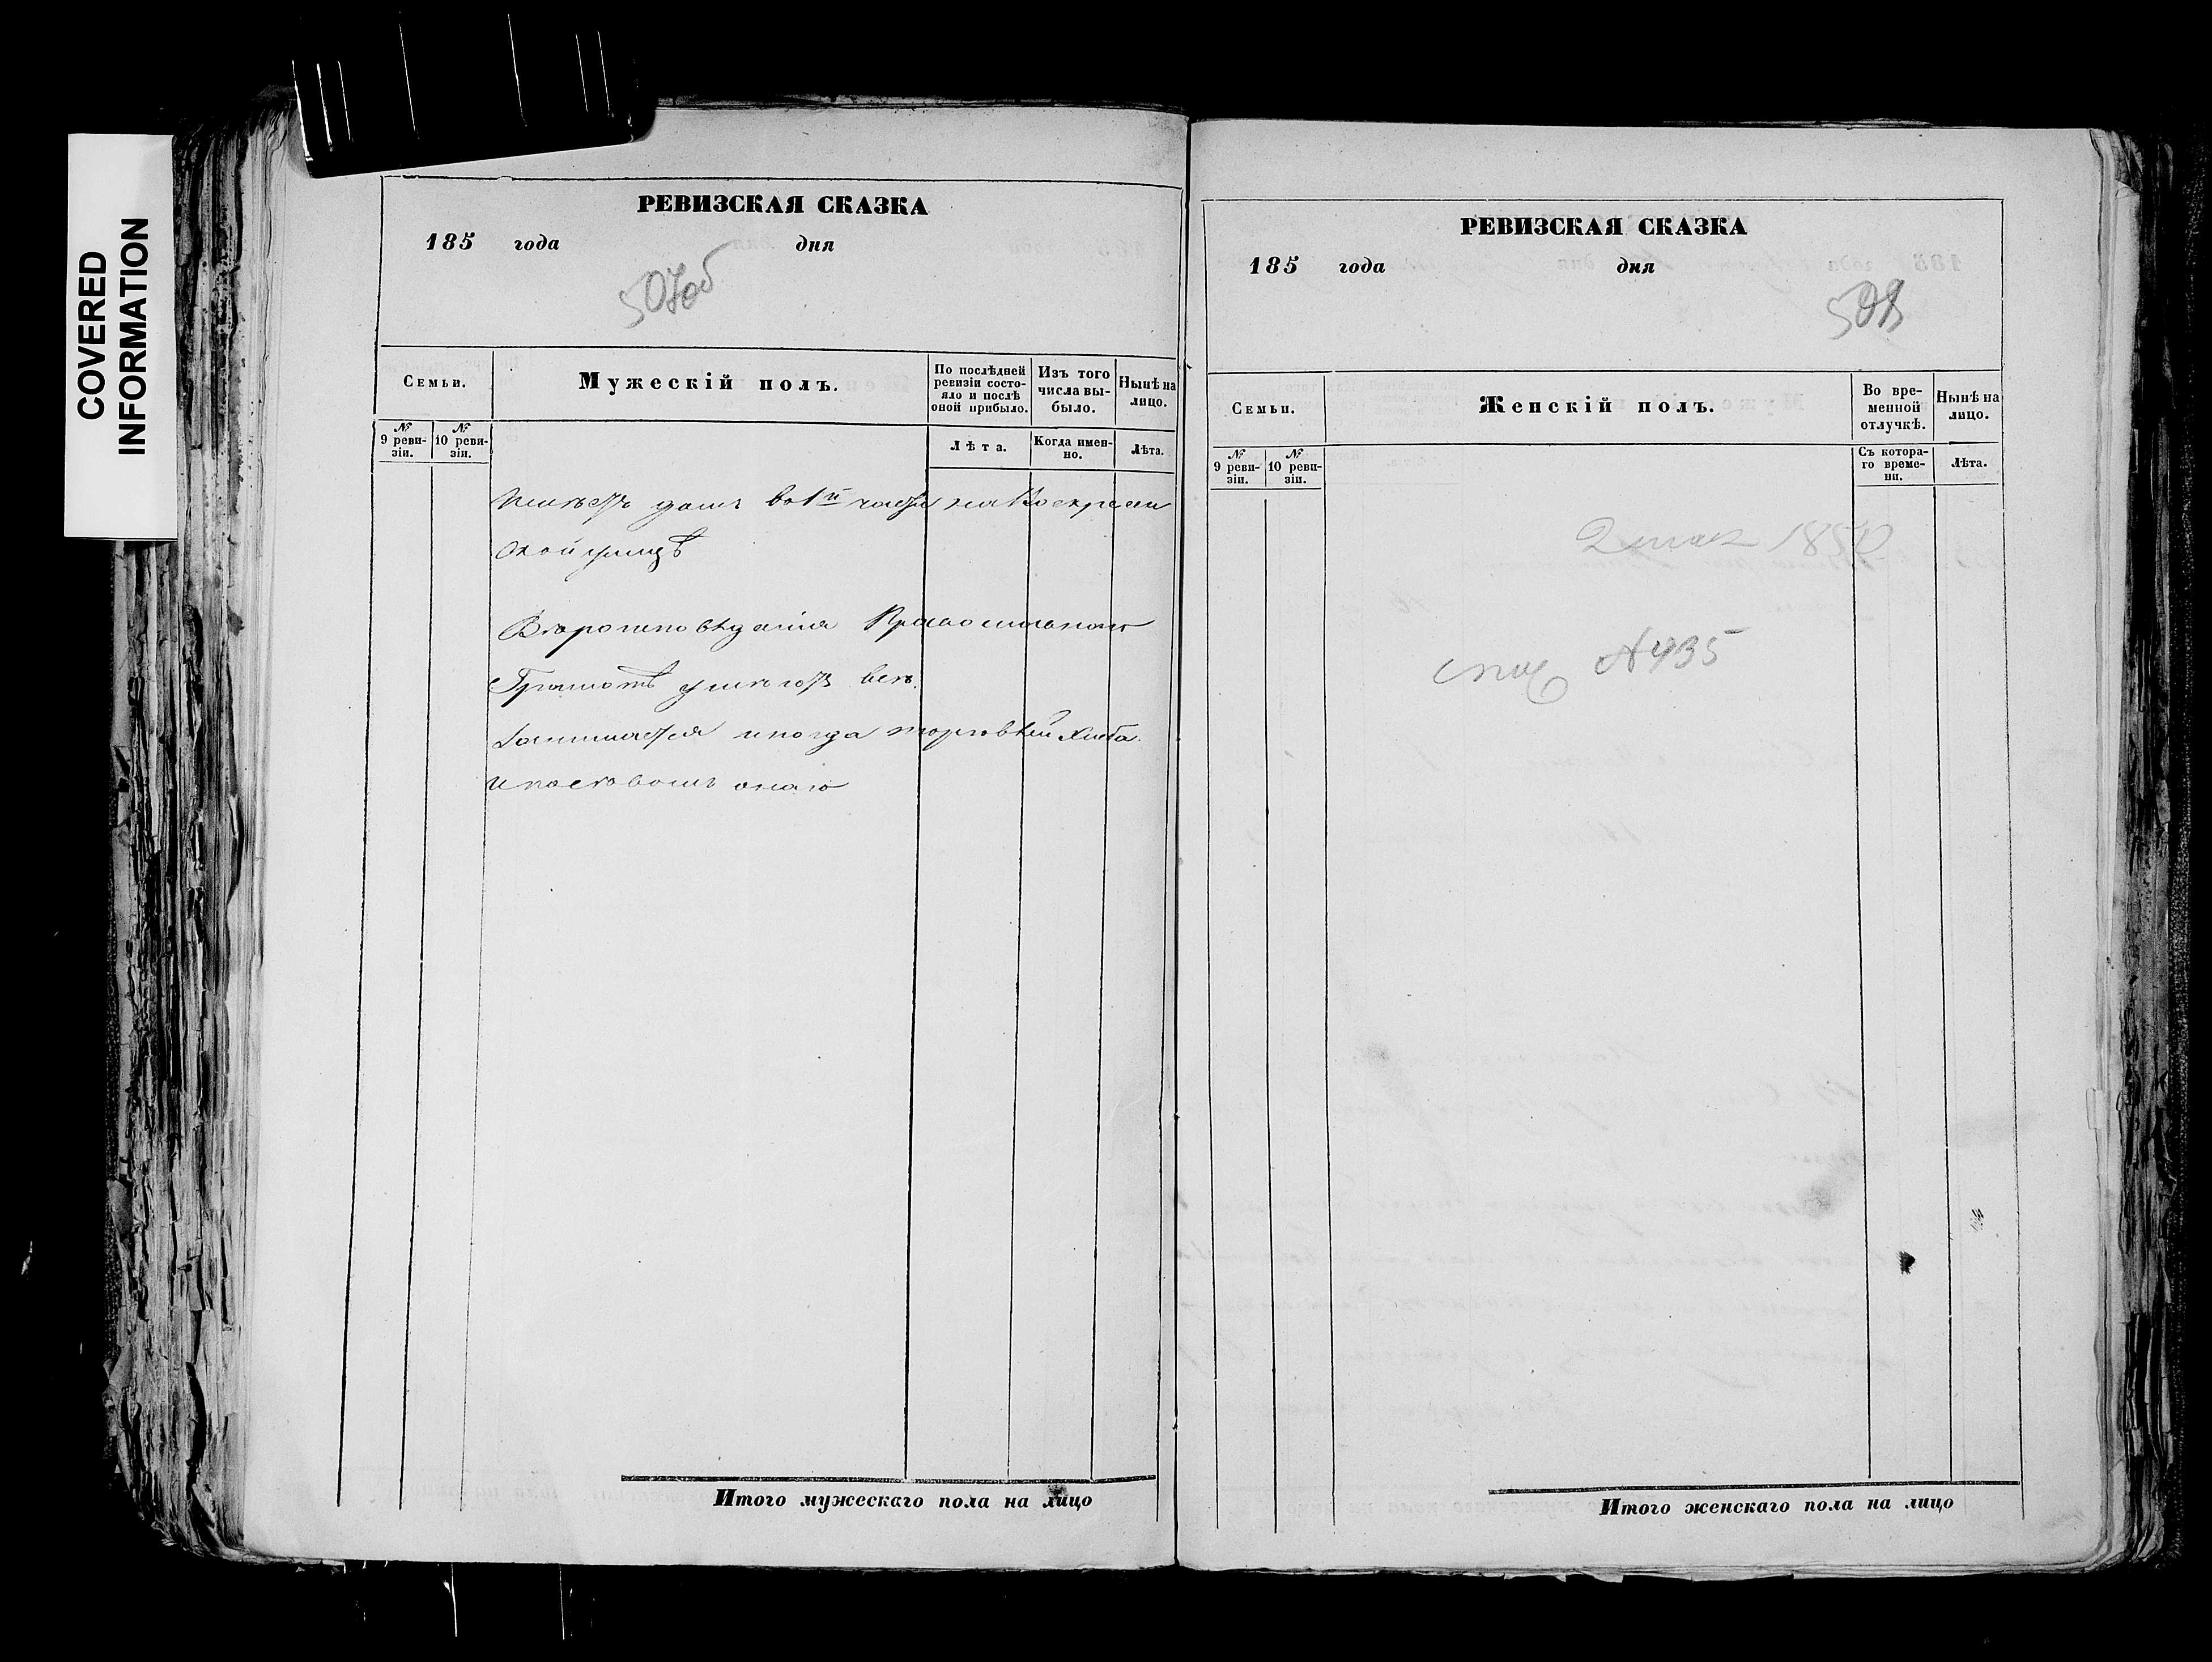 COVERED
INFORMATION
РЕВИЗСКАЯ СКАЗКА
185 года дня
507об
Семьи.
Мужескій полъ.
По послѣдней ревизіи состояло и послѣ оной прибыло.
Изъ того числа выбыло.
Нынѣ на лицо.
№ 9 ревизіи.
№ 10 ревизіи.
Лѣта.
Когда именно.
Лѣта.
Имѣетъ домъ во 1й части на Воскресен
ской улицѣ
Вѣроисповѣданія Православнаго
Грамотѣ умѣютъ всѣ.
Занимается иногда торговлей хлѣба.
Итого мужескаго пола на лицо
РЕВИЗСКАЯ СКАЗКА
185 года дня
Семьи.
Женскій полъ.
Во временной отлучкѣ.
Нынѣ на лицо.
№ 9 ревизіи.
№ 10 ревизіи.
Съ котораго времени.
Лѣта.
№ 435
Итого женскаго пола на лицо